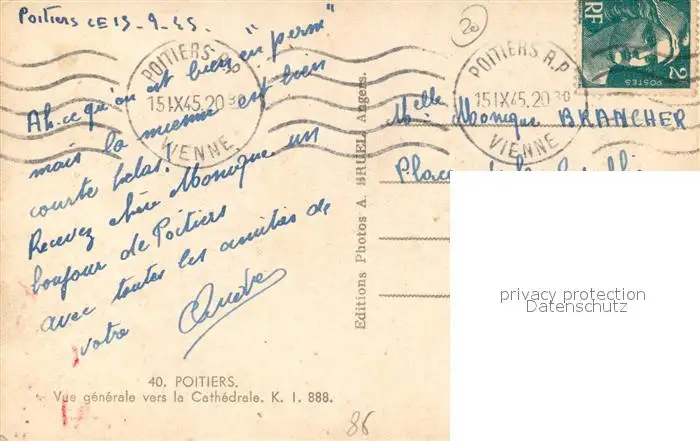 Poitiers CE 15-9-45.
20
Ah. ce qu'on est bien "en perme"
mais la mienne est bien
courte helas.
Recevez chère Monique un
bonjour de Poitiers
avec toutes les amitiés de
votre
POITIERS R.P.
15 IX 45. 20 30
VIENNE
POITIERS R.P.
15 IX 45. 20 30
VIENNE
RF
2F
POSTES
Melle Monique BRANCHER
Place
Editions Photos A. BRUEL, Angers.
40. POITIERS.
Vue générale vers la Cathédrale. K. I. 888.
86
privacy protection
Datenschutz